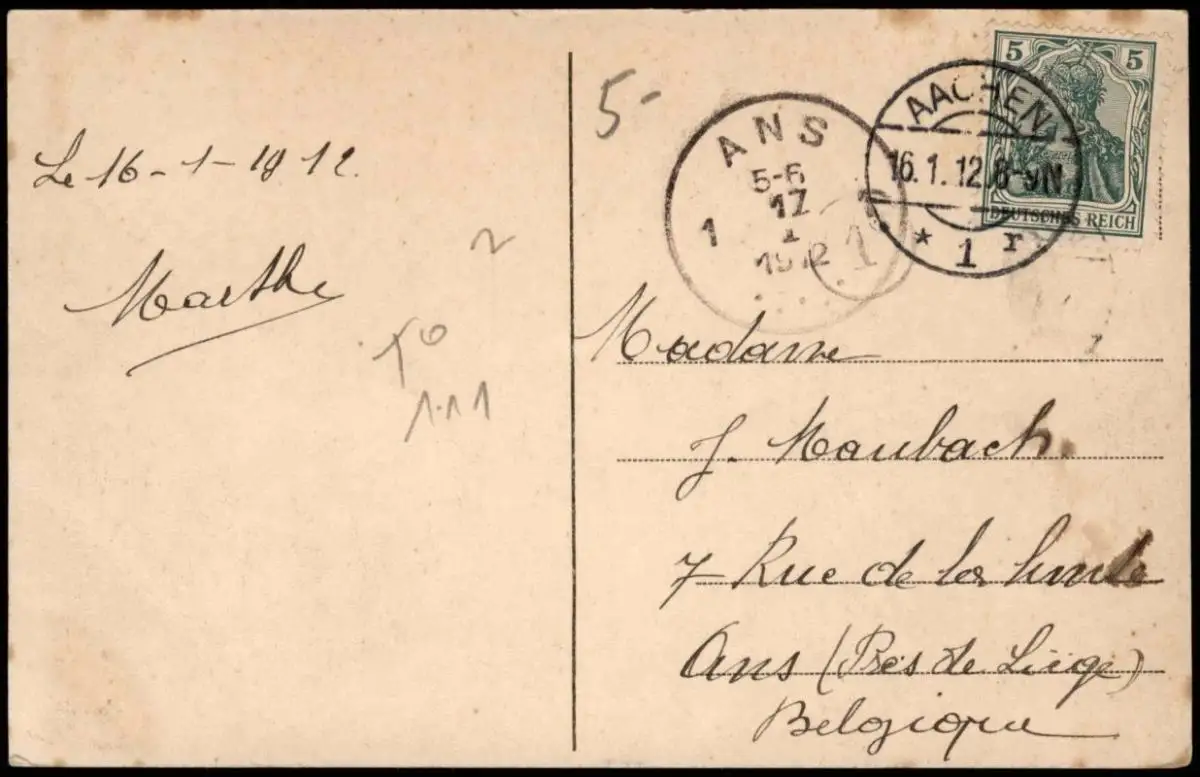 Le 16-1-1912.
Marthe
2
10
1.11
5-
ANS
5-6
1 17
1
1912
1
AACHEN
16.1.12.8-9N
* 1 r
5 5
DEUTSCHES REICH
Madame
J. Maubach.
7 Rue de la
Ans (Près de Liège)
Belgique